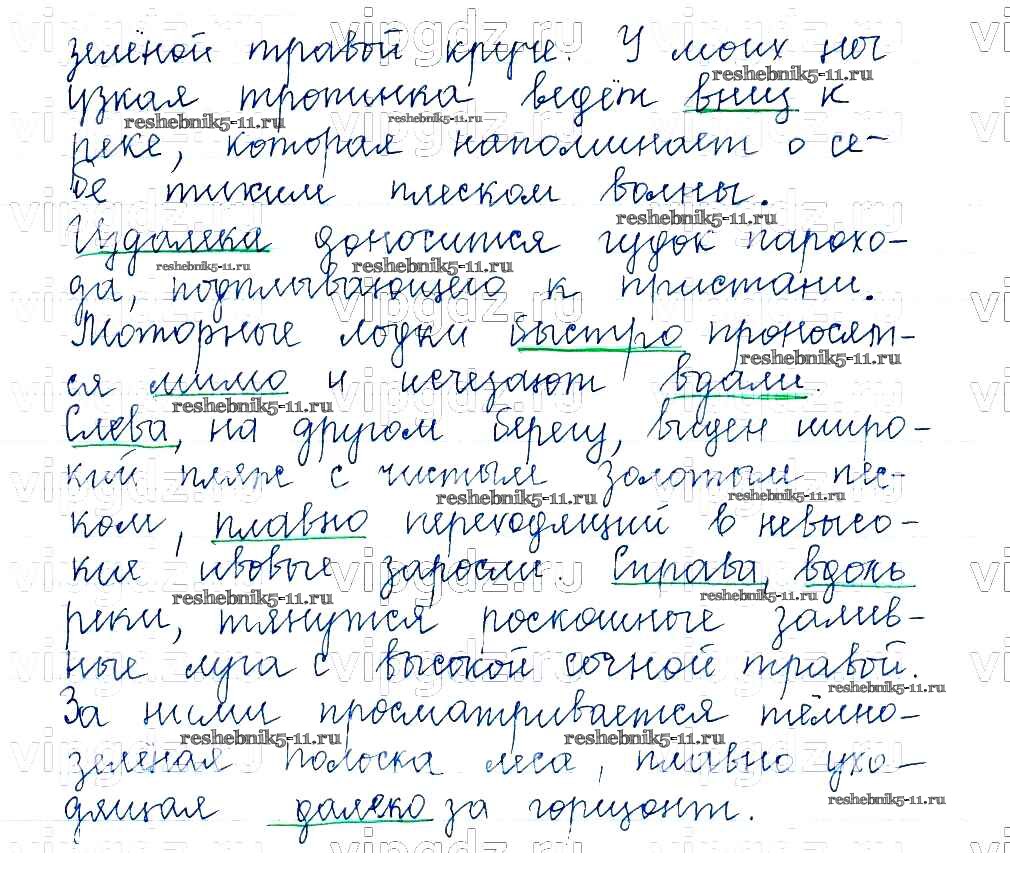 зелёной травой круче. У моих ног
узкая тропинка ведёт вниз к
реке, которая напоминает о се-
бе тихим плеском волны.
Издалека доносится гудок парохо-
да, подплывающего к пристани.
Моторные лодки быстро проносят-
ся мимо и исчезают вдали.
Слева, на другом берегу, виден широ-
кий пляж с чистым золотым пес-
ком, плавно переходящий в невысо-
кие ивовые заросли. Справа, вдоль
реки, тянутся роскошные залив-
ные луга с высокой сочной травой.
За ними просматривается тёмно-
зелёная полоска леса, плавно ухо-
дящая далеко за горизонт.